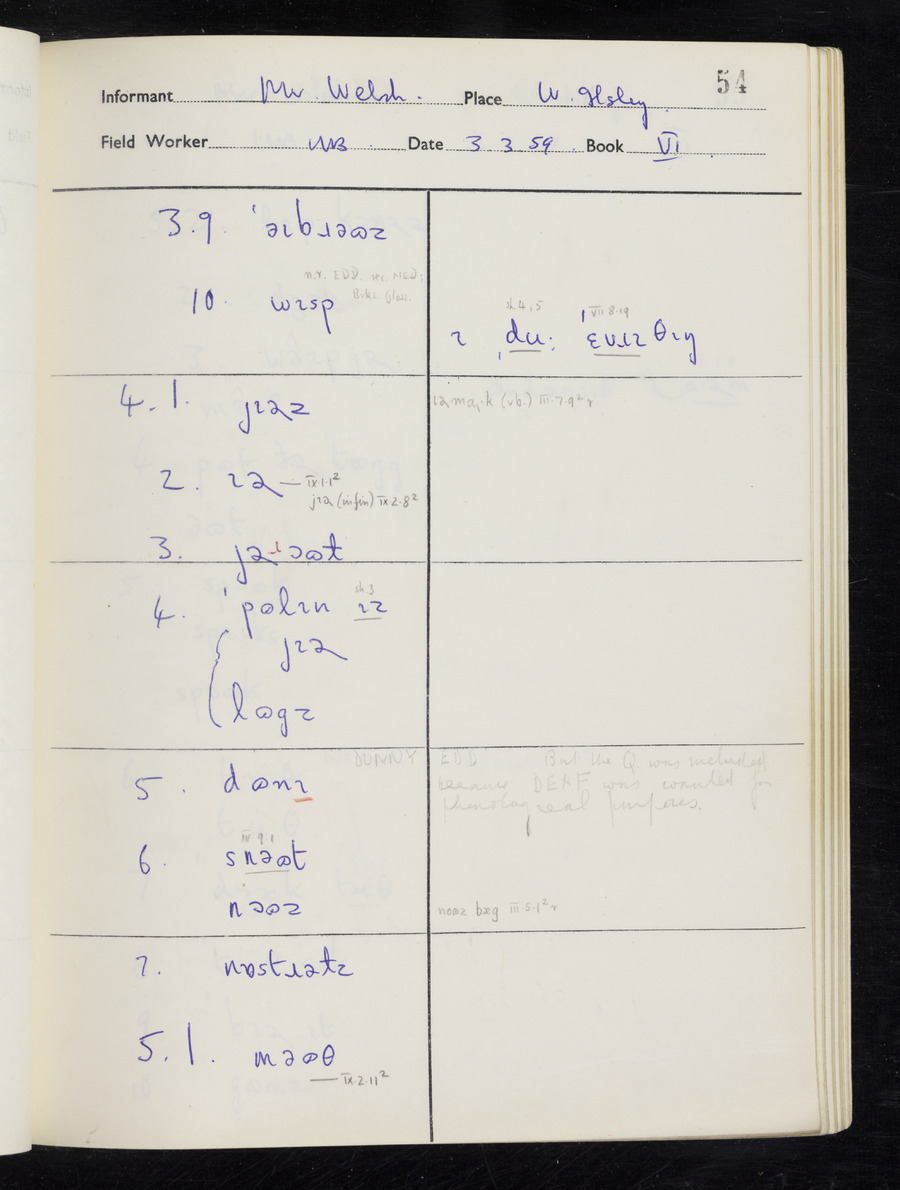 54
Informant Mr Welsh. Place W. Ilsley
Field Worker WB Date 3 3 59 Book VI
3.9. ˈaɪbɹəʊz
n.r. EDD. rec. NED;
Brks. Gloss.
10. wɪsp
sh.4,5 VII·8·19
ɪ ˌduː ˈɛvɹɪ θɪŋ
4.1. jɪəz
ɪə maːk (vb.) III·7·9² r
2. ɪə — IX·1·1²
jɪə (infin) IX·2·8²
3. jəɹəʊt
sh.3
4. ˈpʊlɪn ɪz
jɪə
lʊgz
DUNNY EDD But the Q. was included
because DEAF was wanted for
phonological purposes.
5. dʊnɪ
IV·9·1
6. snəʊt
nəʊz
nəʊz bæg III·5·1² r
7. nɒstɹəɪz
5.1. məʊθ
— IX·2·11²